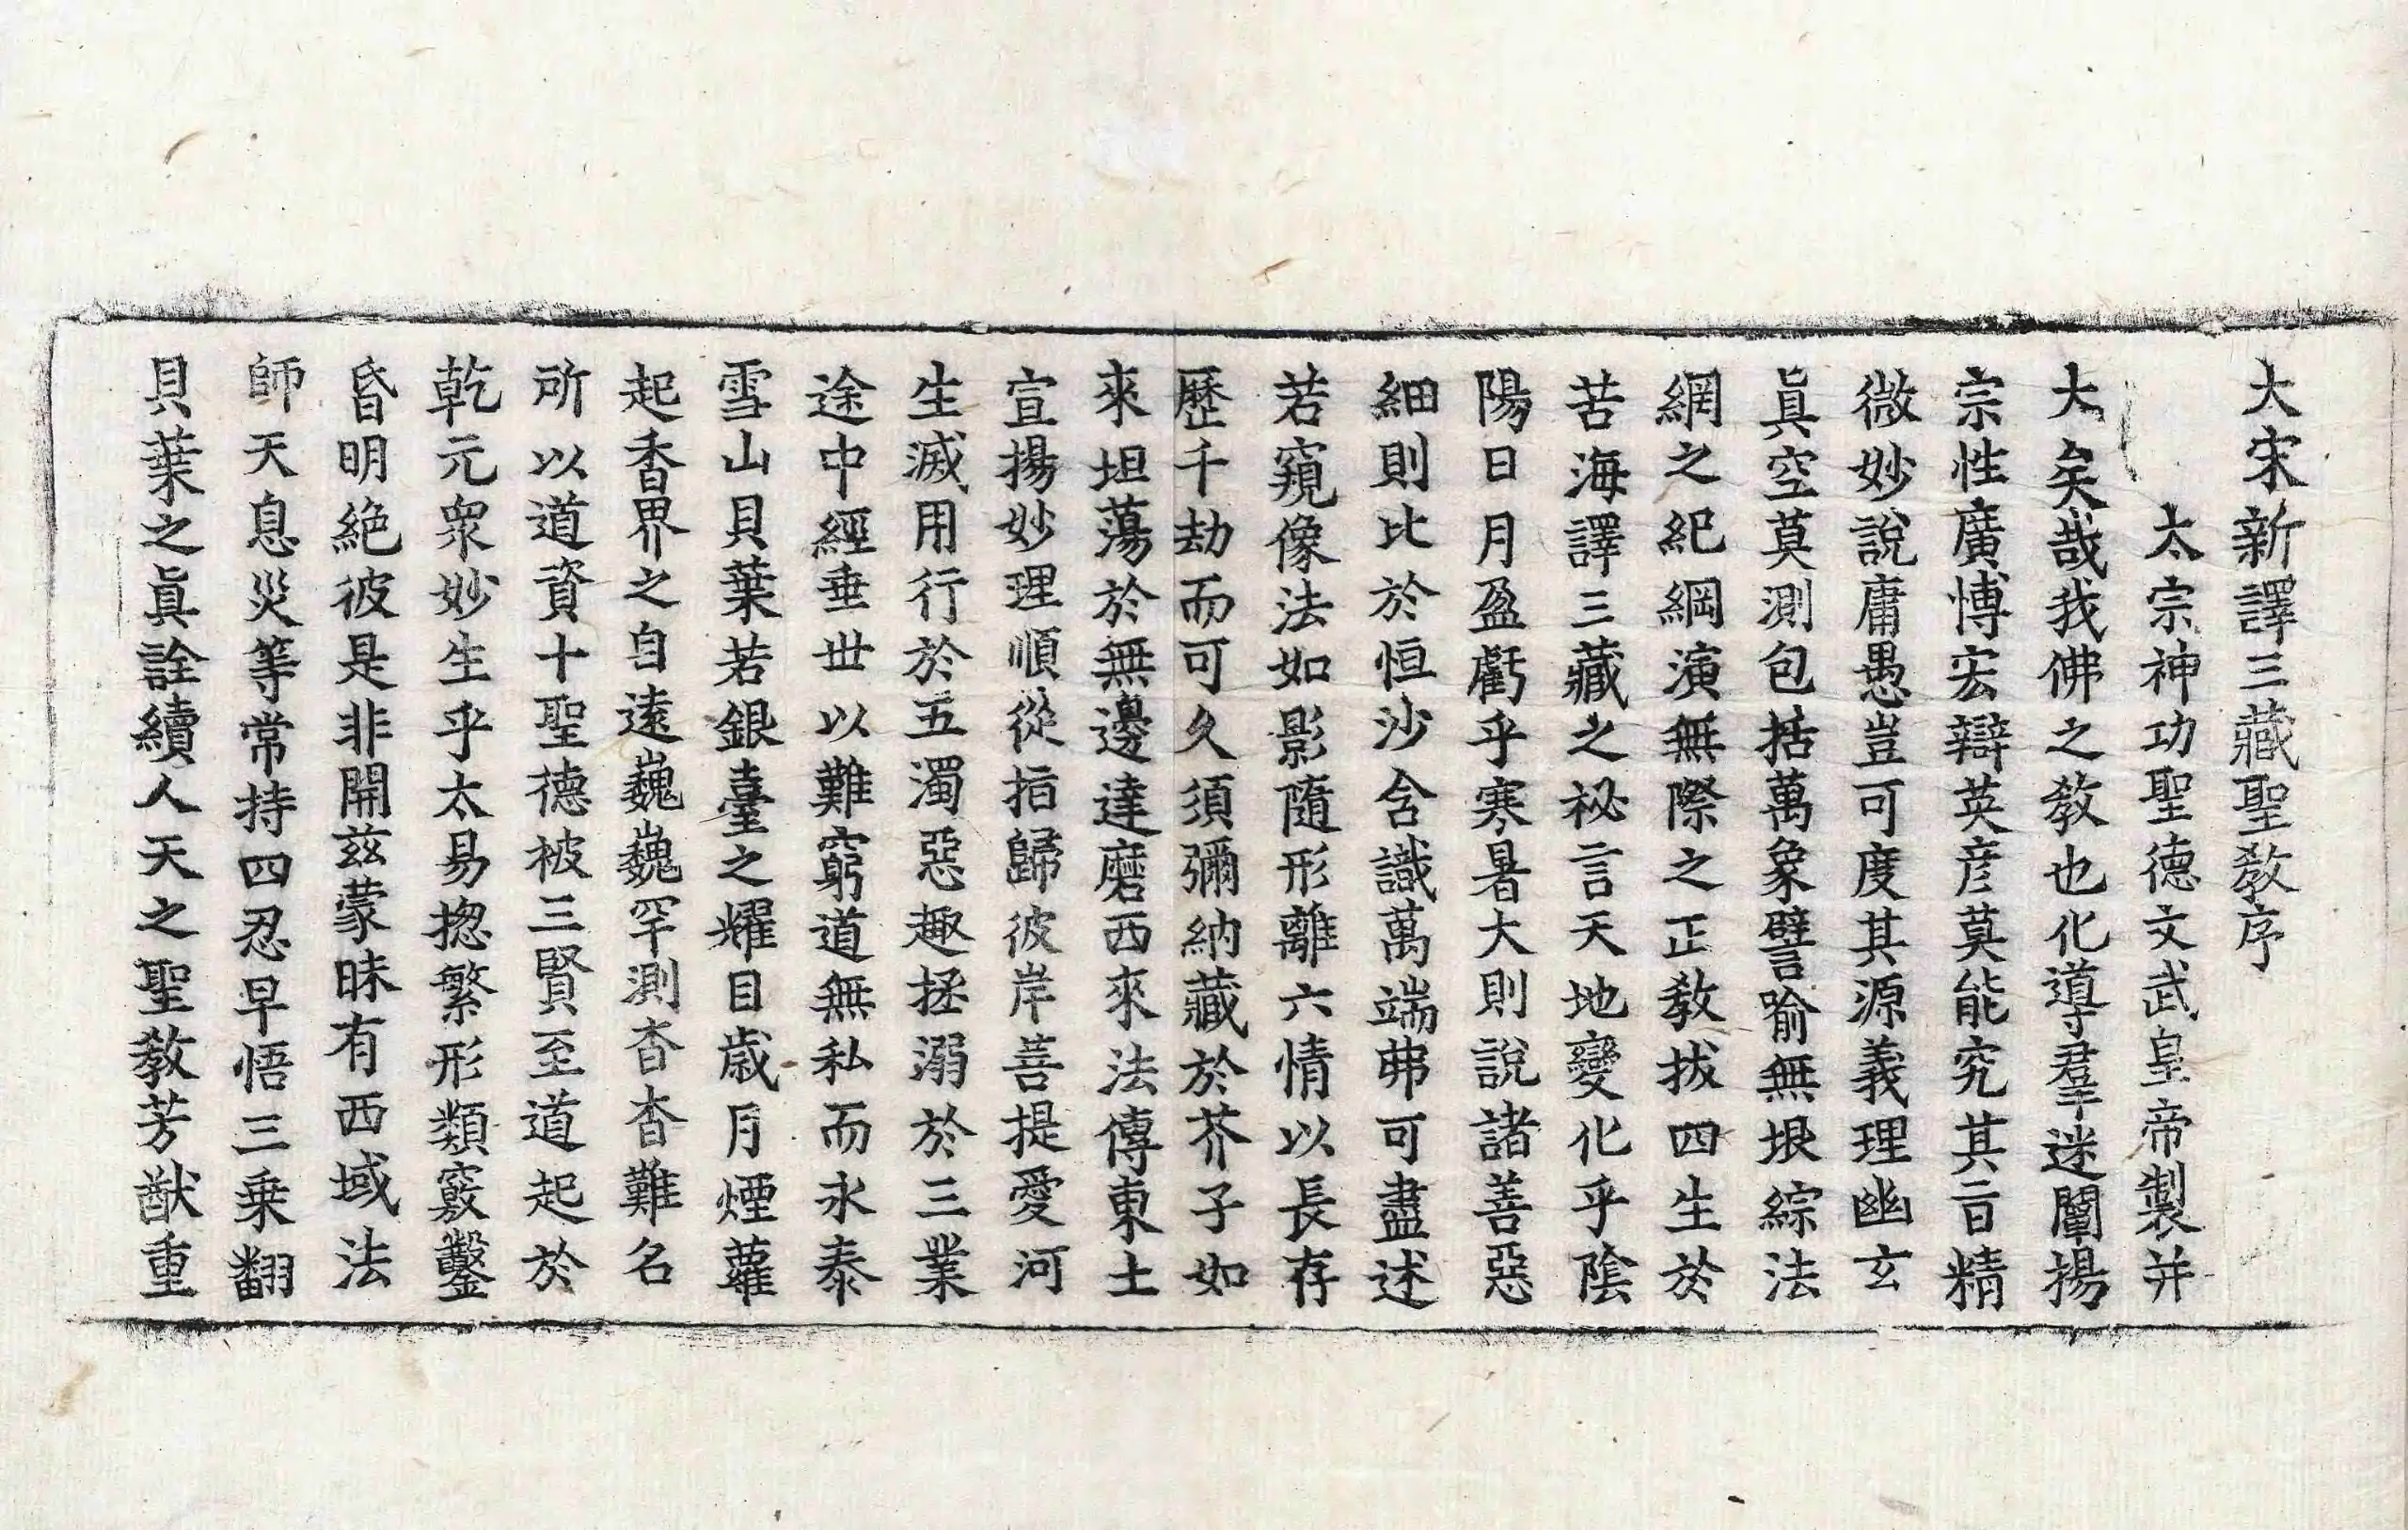 大宋新譯三藏聖敎序
太宗神功聖德文武皇帝製并
大矣哉我佛之敎也化導羣迷闡揚
宗性廣博宏辯英彦莫能究其旨精
微妙說庸愚豈可度其源義理幽玄
眞空莫測包括萬象譬喻無垠綜法
網之紀綱演無際之正敎拔四生於
苦海譯三藏之祕言天地變化乎陰
陽日月盈虧乎寒暑大則說諸善惡
細則比於恒沙含識萬端弗可盡述
若窺像法如影隨形離六情以長存
歷千劫而可久須彌納藏於芥子如
來坦蕩於無邊達磨西來法傳東土
宣揚妙理順從指歸彼岸菩提愛河
生滅用行於五濁惡趣拯溺於三業
途中經垂世以難窮道無私而永泰
雪山貝葉若銀臺之耀目歲月煙蘿
起香界之自遠巍巍罕測杳杳難名
所以道資十聖德被三賢至道起於
乾元衆妙生乎太易揔繁形類竅鑿
昏明絶彼是非開茲蒙昧有西域法
師天息災等常持四忍早悟三乗翻
貝葉之眞詮續人天之聖敎芳猷重